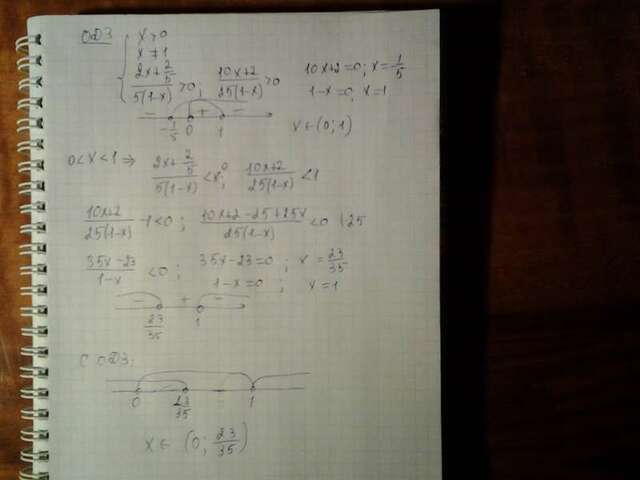 ОДЗ { x > 0
x ≠ 1
(2x + 2/5)/(5(1-x)) > 0 ; (10x+2)/(25(1-x)) > 0 10x+2=0; x = 1/5
1-x=0, x=1
- + -
-1/5 0 1 x ∈ (0; 1)
0 < x < 1 ⇒ (2x + 2/5)/(5(1-x)) < x⁰ ; (10x+2)/(25(1-x)) < 1
(10x+2)/(25(1-x)) - 1 < 0 ; (10x+2-25+25x)/(25(1-x)) < 0 |·25
(35x-23)/(1-x) < 0 ; 35x-23=0 ; x = 23/35
1-x=0 ; x=1
- + -
23/35 1
С ОДЗ:
0 23/35 1
x ∈ (0; 23/35)